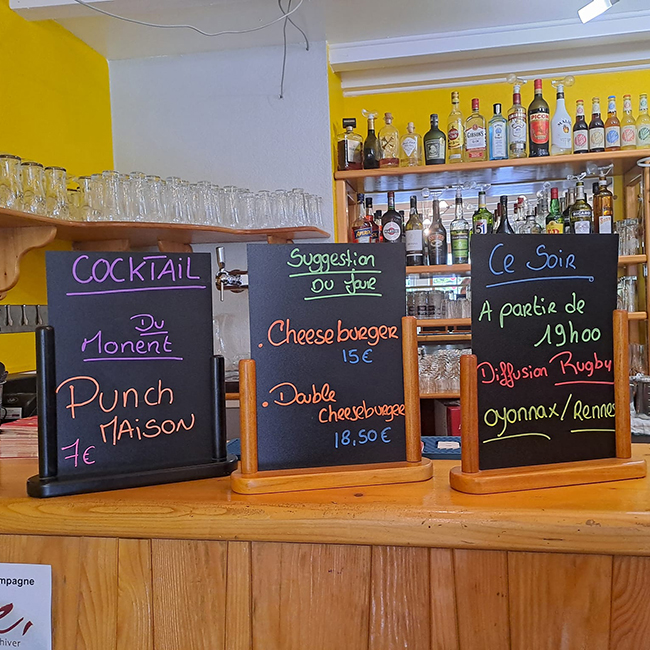 COCKTAIL
Du
Monent
Punch
MAISON
7€
Suggestion
Du Jour
. Cheeseburger
15€
. Double
cheeseburger
18,50€
Ce Soir
A partir de
19h00
Diffusion Rugby
oyonnax/Rennes
mpagne
hiver